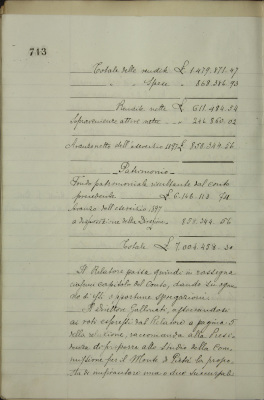 713
Totale delle rendite £ 1.479.871.47
" " Spese " 868.386.93
Rendite nette £ 611.484.54
Sopravvenienze attive nette " 246.860.02
Avanzo netto dell'esercizio 1897 £ 858.344.56
Patrimonio
Fondo patrimoniale risultante dal conto
precedente £ 6.146.113.
Avanzo dell'esercizio 1897
a disposizione della Direzione 858.344.56
Totale £ 7.004.458.
Il Relatore passa quindi in rassegna
i singoli capitoli del Conto, dando su ognu-
no d'essi opportune spiegazioni.
Il Direttore
ai voti dal Relatore a pagina 5
della relazione, raccomanda alla Presi-
denza di proporre allo studio della Com-
missione per il Monte di Pietà la propo-
sta di impiantare una o due succursali